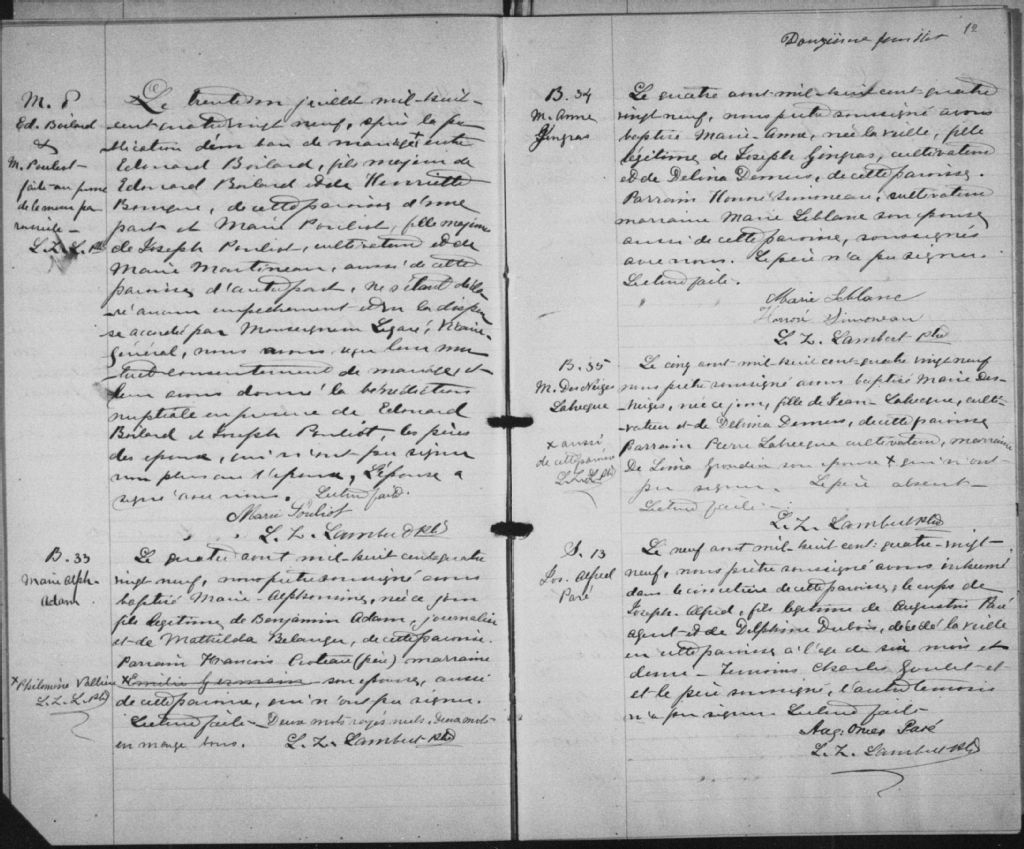 M. 8
Ed. Boilard
&
M. Pouliot
fait au prone
de la messe pa-
roissiale -
L. Z. L. Ptr
Le trente un juillet mil-huit-
cent quatre vingt neuf, après la pu
blication d'un ban de mariage + entre
Edouard Boilard, fils majeur de
Edouard Boilard et de Henriette
Bourque, de cette paroisse d'une
part et Marie Pouliot, fille majeure
de Joseph Pouliot, cultivateur et de
Marie Martineau, aussi de cette
paroisse d'autre part, ne s'étant décla
ré aucun empêchement et vu la dispen
se accordée par Monseigneur Légaré, Vicaire-
général, nous avons reçu leur mu
tuel consentement de mariage et
leur avons donné la bénédiction
nuptiale en présence de Edouard
Boilard et Joseph Pouliot, les pères
des époux, qui n'ont pu signer
non plus que l'époux, L'épouse a
signé avec nous. Lecture faite.
Marie Pouliot
L. Z. Lambert Ptr
B. 33
Marie Alph-
Adam
Le quatre aout mil-huit cent quatre
vingt neuf, nous prêtre soussigné avons
baptisé Marie-Alphonsine, née ce jour
fille légitime de Benjamin Adam, journalier
et de Mathilda Belanger, de cette paroisse.
Parrain Francois Croteau (père) marraine
x Emilie Germain son épouse, aussi
de cette paroisse, qui n'ont pu signer.
Lecture faite - Deux mots rayés nuls, deux mots
en marge bons. L. Z. Lambert Ptr
x Philomène Vallière
L. Z. L. Ptr
Douzième feuillet
12
B. 34
M. Anne
Gingras
Le quatre aout mil-huit cent quatre
vingt neuf, nous prêtre soussigné avons
baptisé Marie-Anne, née la veille, fille
légitime de Joseph Gingras, cultivateur
et de Delina Demers, de cette paroisse.
Parrain Honoré Simoneau, cultivateur
marraine Marie Leblanc son épouse
aussi de cette paroisse, soussignés
avec nous. Le père n'a pu signer.
Lecture faite.
Marie Leblanc
Honoré Simoneau
L. Z. Lambert Ptr
B. 35
M. Des Neiges
Labrecque
x aussi
de cette paroisse
L. Z. L. Ptr
Le cinq aout mil-huit cent-quatre vingt neuf
nous prêtre soussigné avons baptisé Marie Des-
Neiges, née ce jour, fille de Jean Labrecque, culti-
vateur et de Delima Demers, de cette paroisse
Parrain Pierre Labrecque cultivateur, marraine
De Lima Grondin son épouse x qui n'ont
pu signer. Le père absent -
Lecture faite -
L. Z. Lambert Ptr
S. 13
Jos. Alfred
Paré
Le neuf aout mil-huit cent quatre-vingt-
neuf, nous prêtre soussigné avons inhumé
dans le cimetière de cette paroisse, le corps de
Joseph-Alfred, fils légitime de Augustin Paré
agent et de Delphine Dubois, décédé la veille
en cette paroisse à l'âge de six mois et
demi - Témoins Charles Goulet et
et le père soussigné, l'autre témoin
n'a pu signer. Lecture faite -
Aug: Paré
L. Z. Lambert Ptr